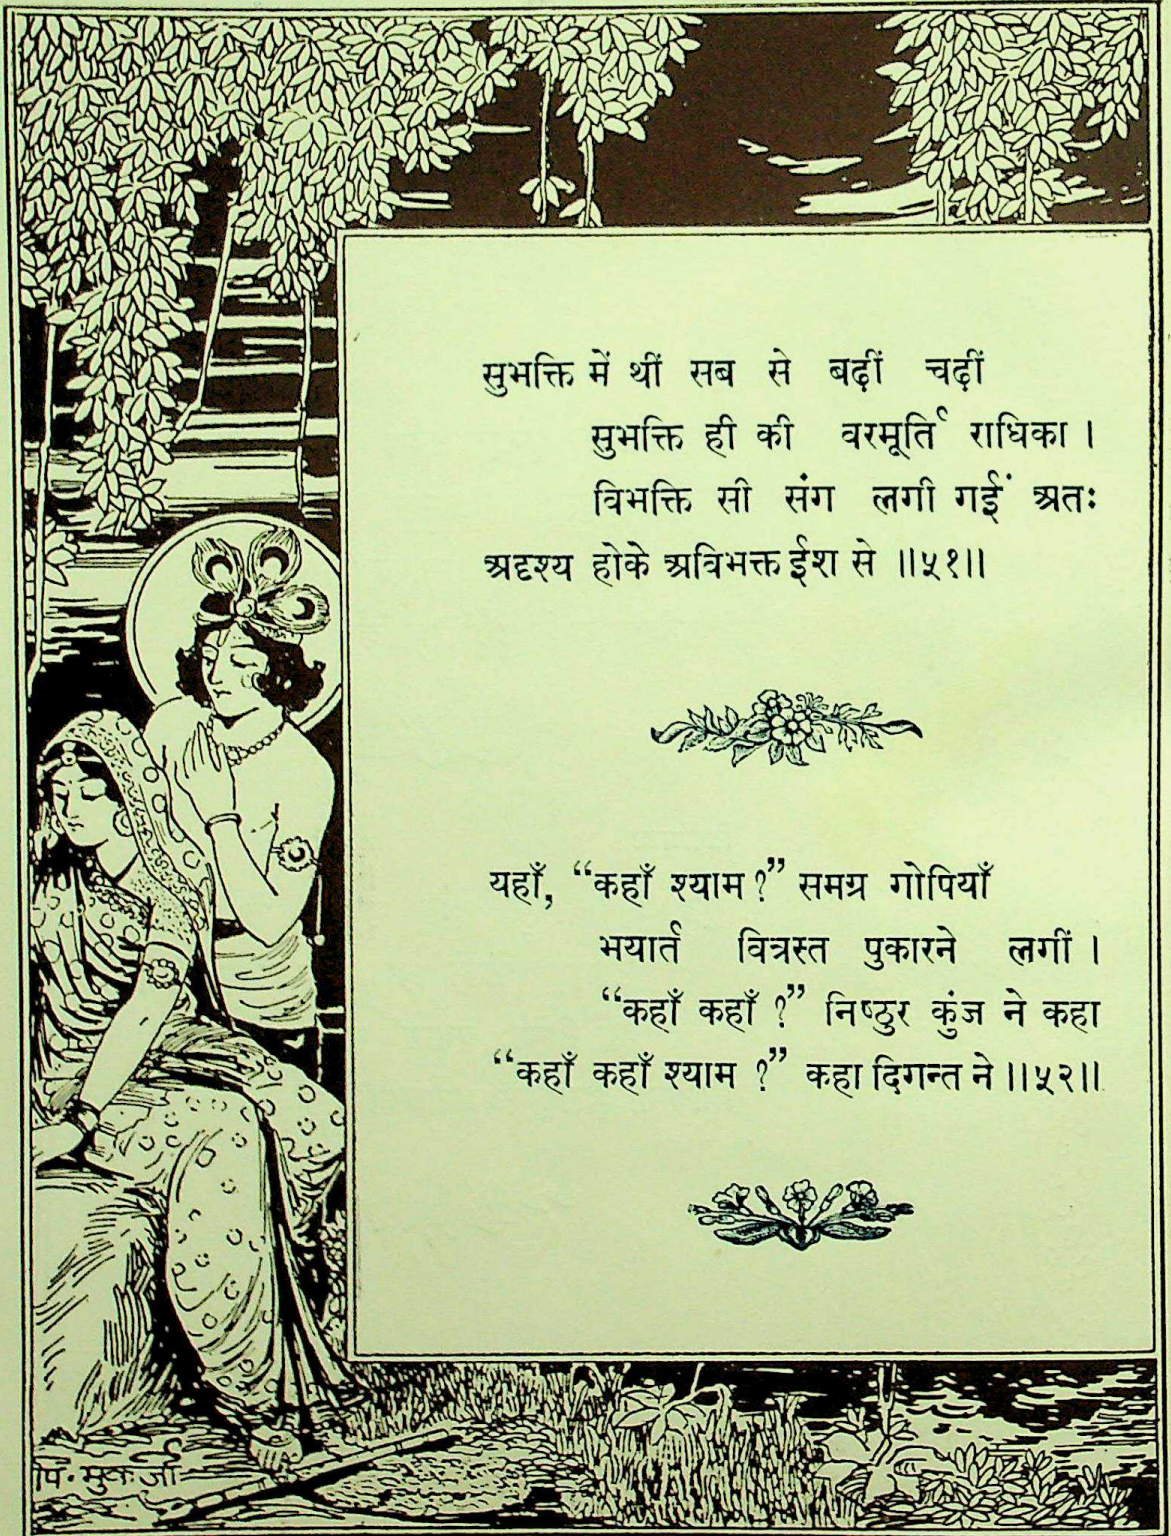 सुभक्ति में थीं सब से बढ़ीं चढ़ीं
सुभक्ति ही की वरमूर्ति राधिका ।
विभक्ति सी संग लगी गईं अतः
अदृश्य होके अविभक्त ईश से ॥५१॥
यहाँ, “कहाँ श्याम ?” समग्र गोपियाँ
भयार्त वित्रस्त पुकारने लगीं ।
“कहाँ कहाँ ?” निष्ठुर कुंज ने कहा
“कहाँ कहाँ श्याम ?” कहा दिगन्त ने ॥५२॥
पि. मुकर्जी